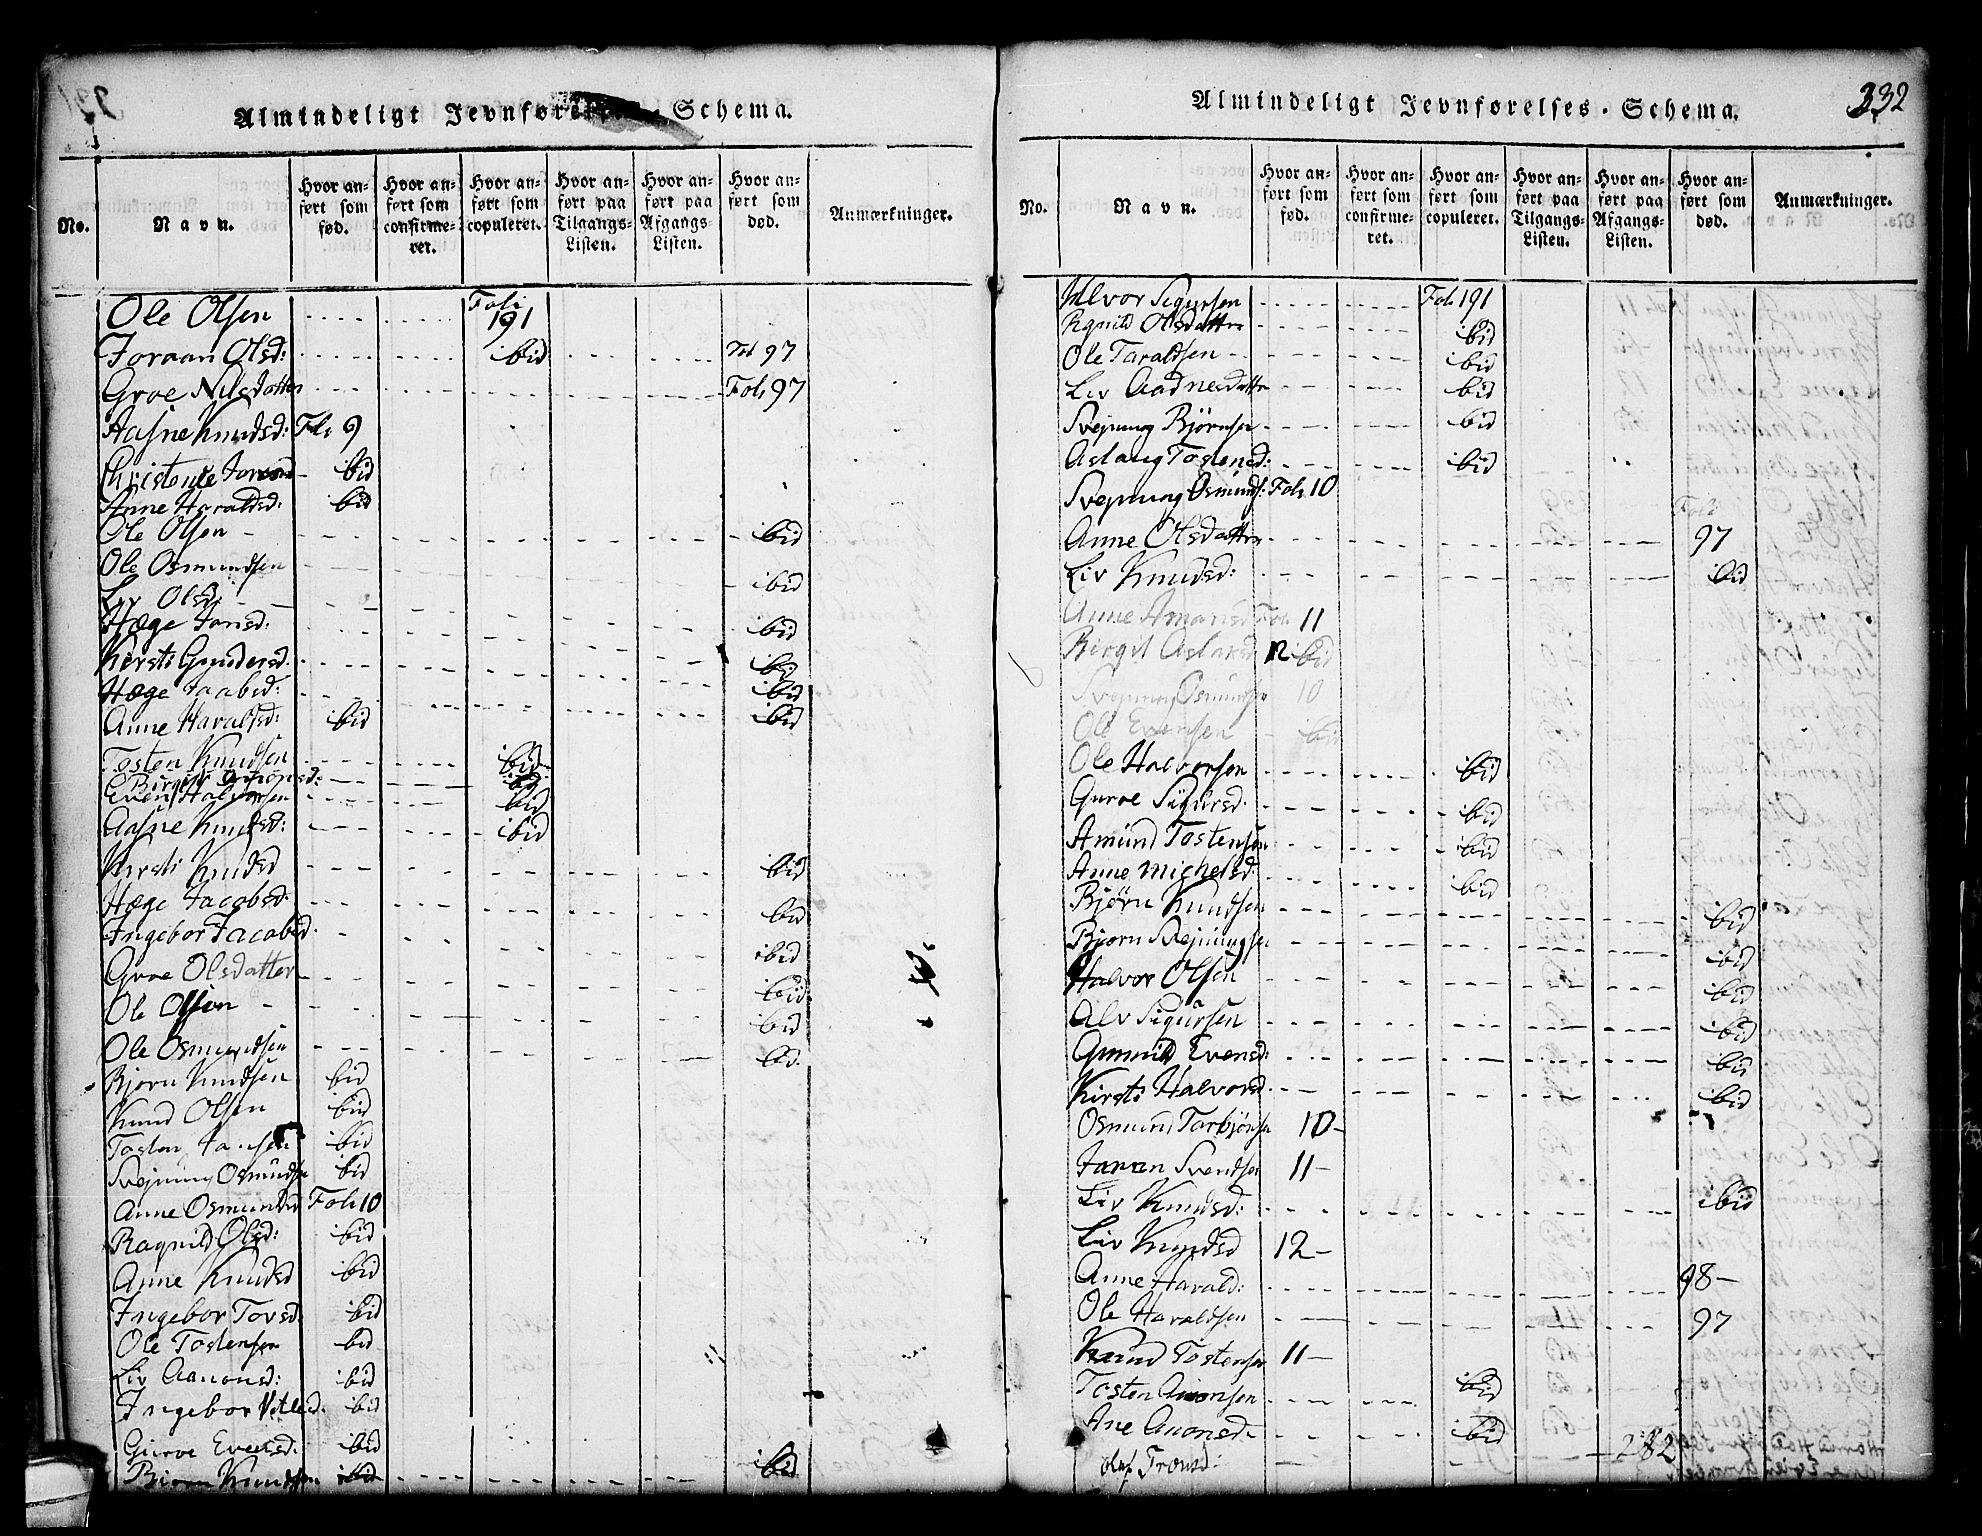 Almindeligt Jevnførelses-Schema.
No.
Navn.
Hvor anført som fød.
Hvor anført som confirmeret.
Hvor anført som copuleret.
Hvor anført paa Tilgangs-Listen.
Hvor anført paa Afgangs-Listen.
Hvor anført som død.
Anmærkninger.
Ole Olsen Foli 191
Joraan Olsd: ibid Fol 97
Groe Nilsdatter Foli 97
Aasne Knudsd: Foli 9
Christense ibid
Anne Haraldsd: ibid
Ole Olsen ibid
Ole Osmundsen ibid
Liv Olsd: ibid
Hæge Jonsd: ibid
Kirsti Gundersd. ibid
Hæge Jacobsd: ibid
Anne Haraldsd: ibid
Tosten Knudsen ibid
Birgit ibid
Even Halvorsen ibid
Aasne Knudsd: ibid
Kirsti Knudsd ibid
Hæge Jacobsd: ibid
Ingebor Jacobsd. ibid
Groe Olsdatter ibid
Ole Olsen ibid
Ole Osmundsen ibid
Bjorn Knudsen ibid
Knud Olsen ibid
Tosten Jansen ibid
Svejnung Osmundsen ibid
Anne Osmundsd Foli 10
Ragnild Olsd: ibid
Anne Knudsd ibid
Ingebor Tovsd: ibid
Ole Tostensen ibid
Liv Aanonsd: ibid
Ingebor ibid
Guroe Evensd: ibid
Biorn Knudsen ibid ibid
Almindeligt Jevnførelses-Schema.
332
No.
Navn.
Hvor anført som fød.
Hvor anført som confirmeret.
Hvor anført som copuleret.
Hvor anført paa Tilgangs-Listen.
Hvor anført paa Afgangs-Listen.
Hvor anført som død.
Anmærkninger.
Halvor Sigursen Foli 191
Rgnild Olsdatter ibid
Ole Taraldsen ibid
Liv Aadnesdatter ibid
Svejnung Bjørnsen ibid
Aslaug Tostensd: ibid
Svejnung Osmunds: Foli 10
Anne Olsdatter Foli 97
Liv Knudsd: ibid
Anne Amundsd Foli 11
Birgit Aslaksd 12 ibid
Svejnung Osmundsen 10
Ole Evensen ibid
Ole Halvorsen ibid
Guroe Sigursd. ibid
Amund Tostensen ibid
Anne Michelsd: ibid
Bjørn Knudsen ibid
Bjorn Svejnungsen ibid
Halvor Olsen ibid
Alv Sigursen ibid
Gunnild Evensd: ibid
Kirsti Halvorsd. ibid
Osmund Torbjønsen 10-
Joran Svendsen 11-
Liv Knudsd: ibid
Liv Knudsd 12-
Anne Harald: 98-
Ole Haraldsen 97
Knud Tostensen 11-
Tosten Anonsen ibid
Ane Anonsd- ibid
282